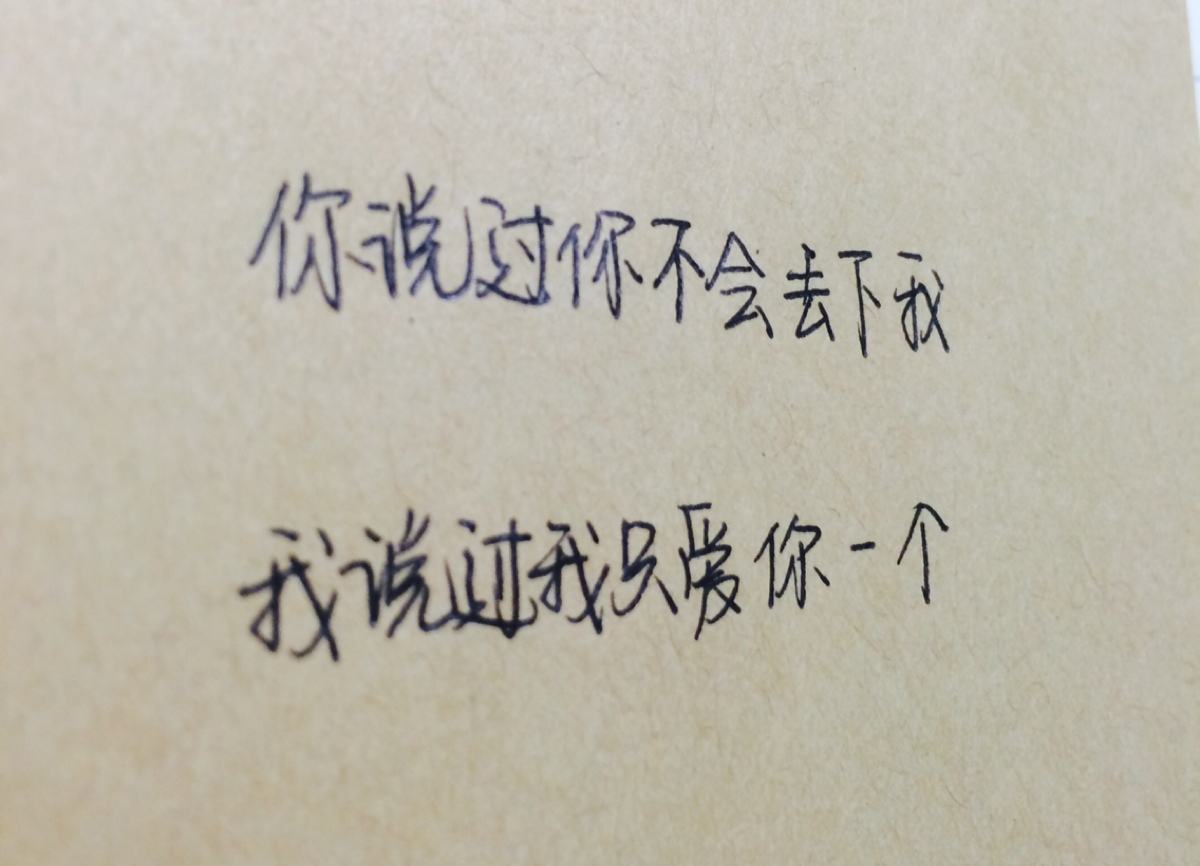 你说过你不会去下我
我说过我只爱你一个